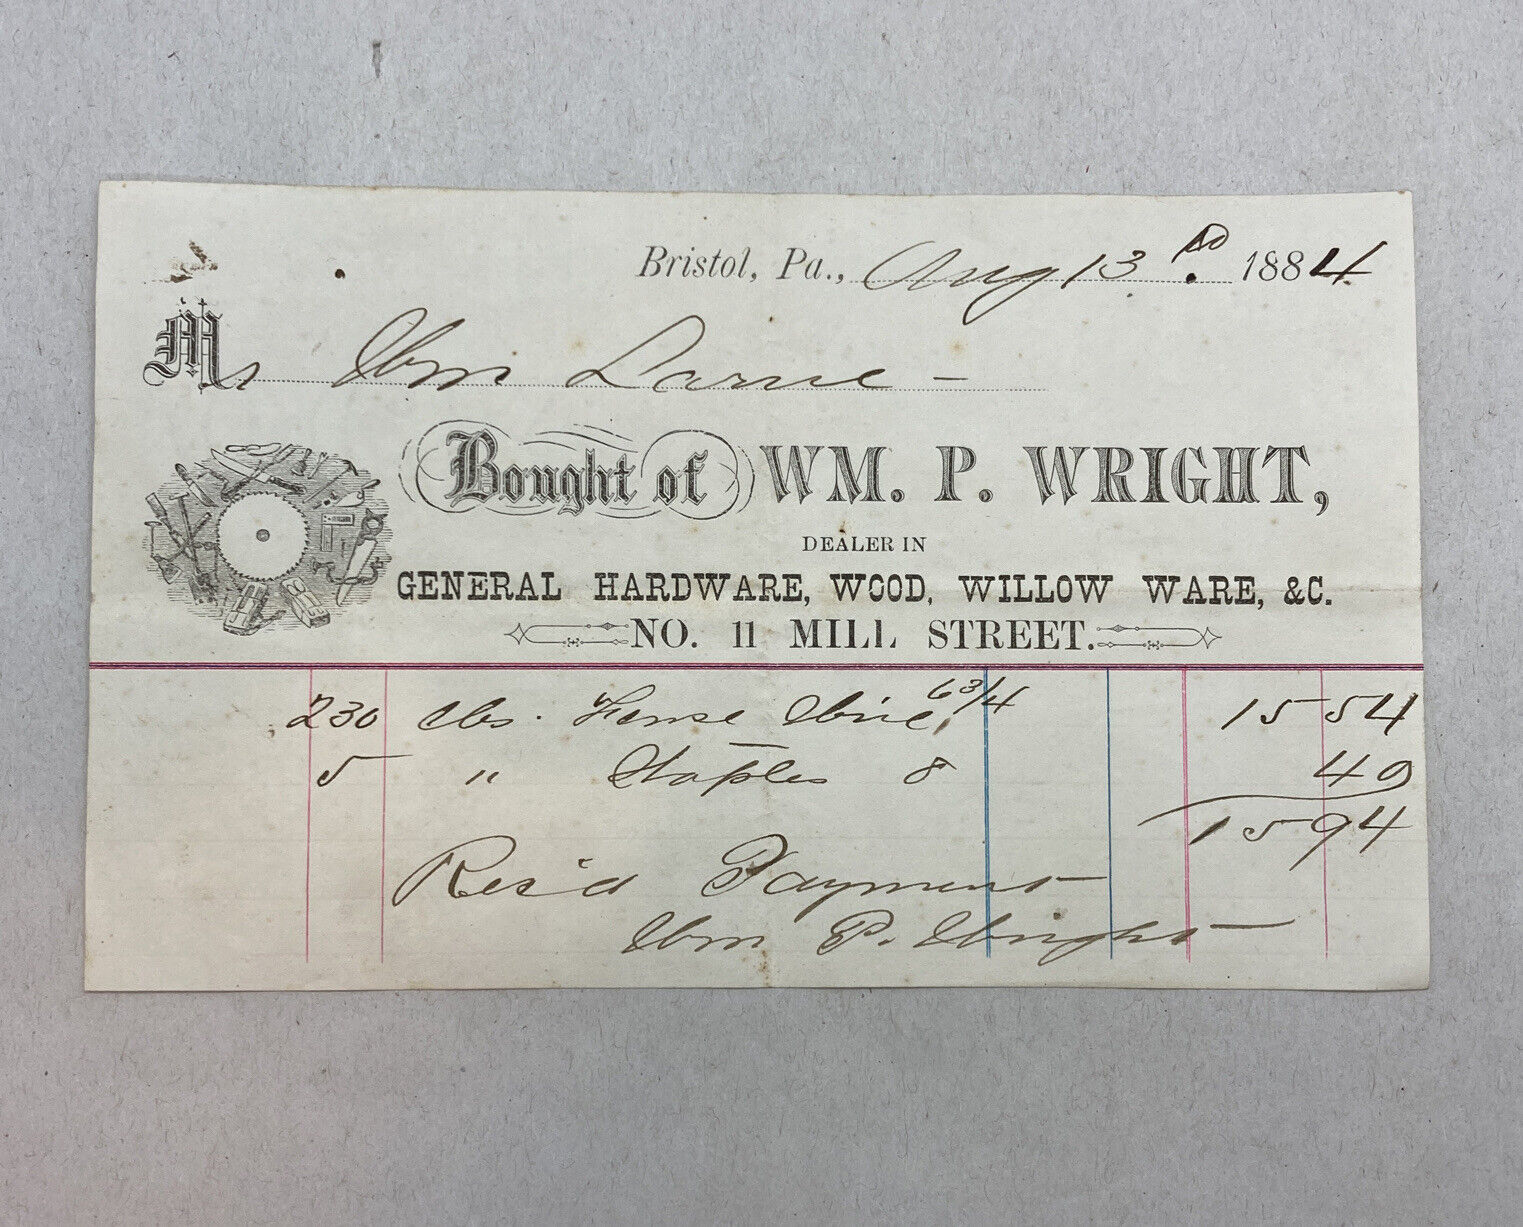 Bristol, Pa., Aug 13 1884
Mr Wm Larue -
Bought of WM. P. WRIGHT,
DEALER IN
GENERAL HARDWARE, WOOD, WILLOW WARE, &C.
NO. 11 MILL STREET.
230 lbs. Fense Wire 6 3/4 15 54
5 " Staples 8 40
15 94
Rec'd Payment
Wm P. Wright